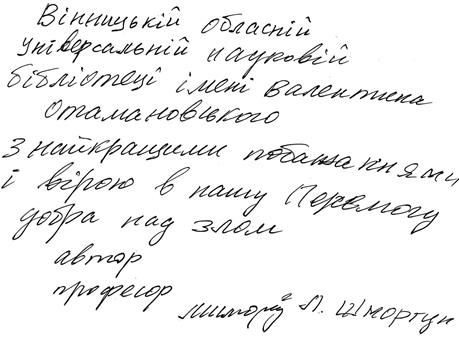 Вінницькій обласній
універсальній науковій
бібліотеці імені Валентина
Отамановського
з найкращими побажаннями
і вірою в нашу Перемогу
добра над злом
автор
професор
Л. Шпортун